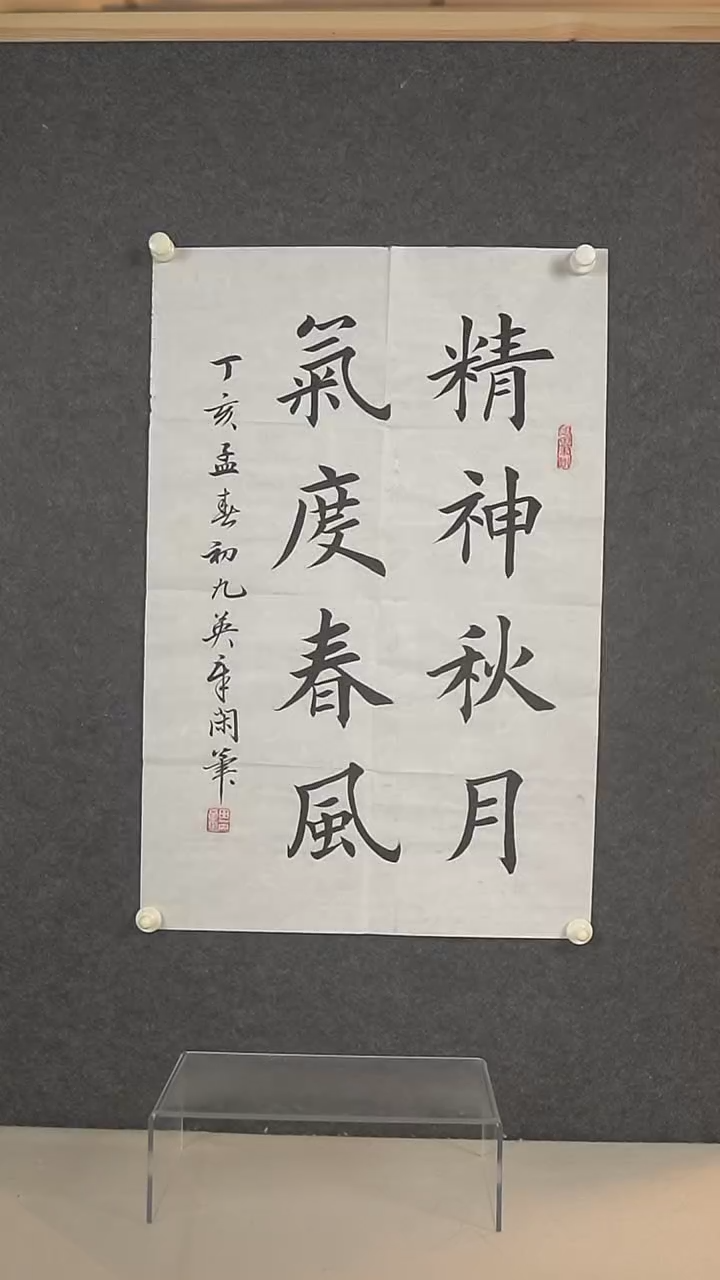 精神秋月
氣度春風
丁亥孟春初九英年閑筆